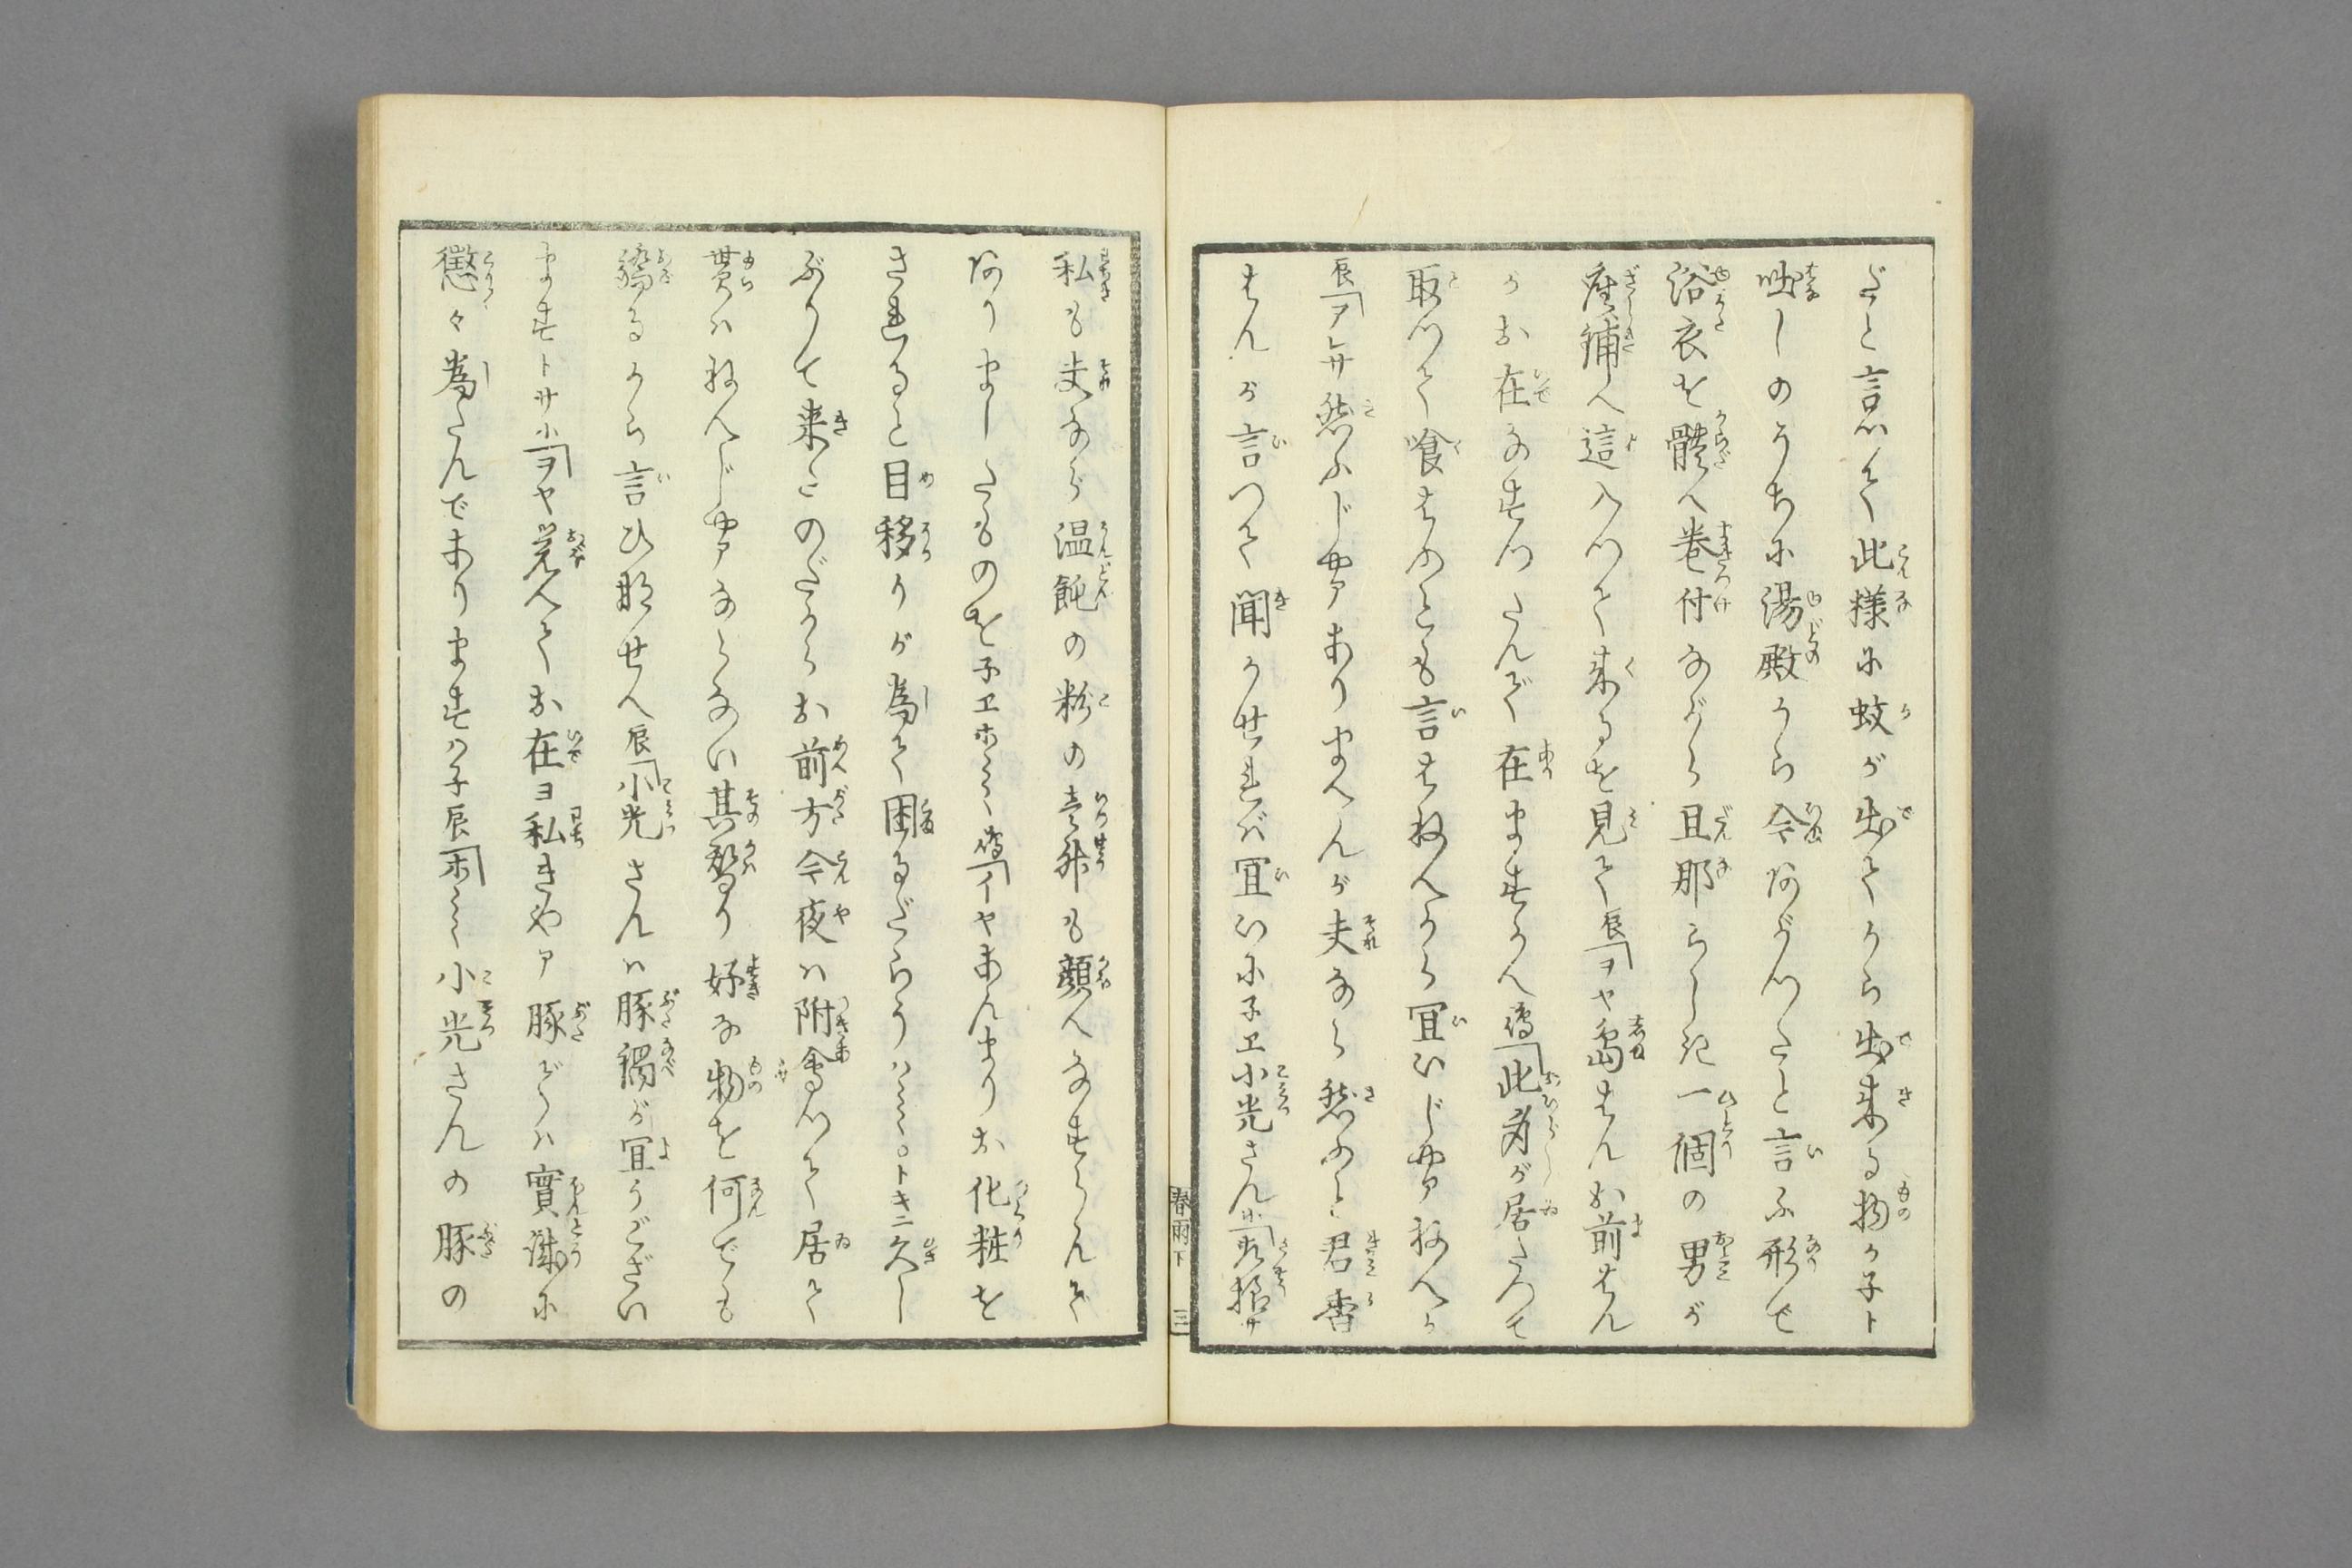 ざと言つて此様に蚊が出てから出来る物か子ト
咄しのうちに湯殿から今あがつたと言ふ形で
浴衣を體へ巻付ながら旦那らしき一個の男が
座鋪へ這入つて来るを見て辰「ヲヤ島さんお前さん
かお在なすつたんで在ますかへ島「此为が居たつて
取つて喰はふとも言はねへから宜いじやアねへか
辰「アレサ然ふじやアありませんが夫なら然ふと君香
さんが言つて聞かせれば宜いに子エ小光さん小「左様サ
春雨下 三
私も夫なら温飩の粉の壱升も顔へなすらんで
ありましたものを子エホヽヽ島「イヤあんまりお化粧を
されると目移りが為て困るだらうハヽヽ○トキニ久し
ぶりて来たのだからお前方今夜ハ附會つて居て
貰ハねんじやアならない其替り好な物を何でも
驕るから言ひ那せへ辰「小光さんハ豚鍋が宜うござい
ますトサ小「ヲヤ覚へてお在ヨ私きやア豚でハ實誠に
懲々為たんでありますハ子辰「ホヽヽ小光さんの豚の